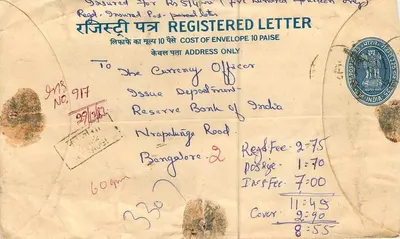 Insured for Rs
Regd. Insured
रजिस्ट्री पत्र REGISTERED LETTER
लिफाफे का मूल्य 10 पैसे COST OF ENVELOPE 10 PAISE
केवल पता ADDRESS ONLY
To
The Currency Officer
Issue Department
Reserve Bank of India
Nrupatunga Road
Bangalore - 2
Ins
NO. 917
60 gm
330
Regd. Fee - 2-75
Postage - 1-70
Ins Fee - 7-00
11-45
Cover - 2-90
8-55
INDIA